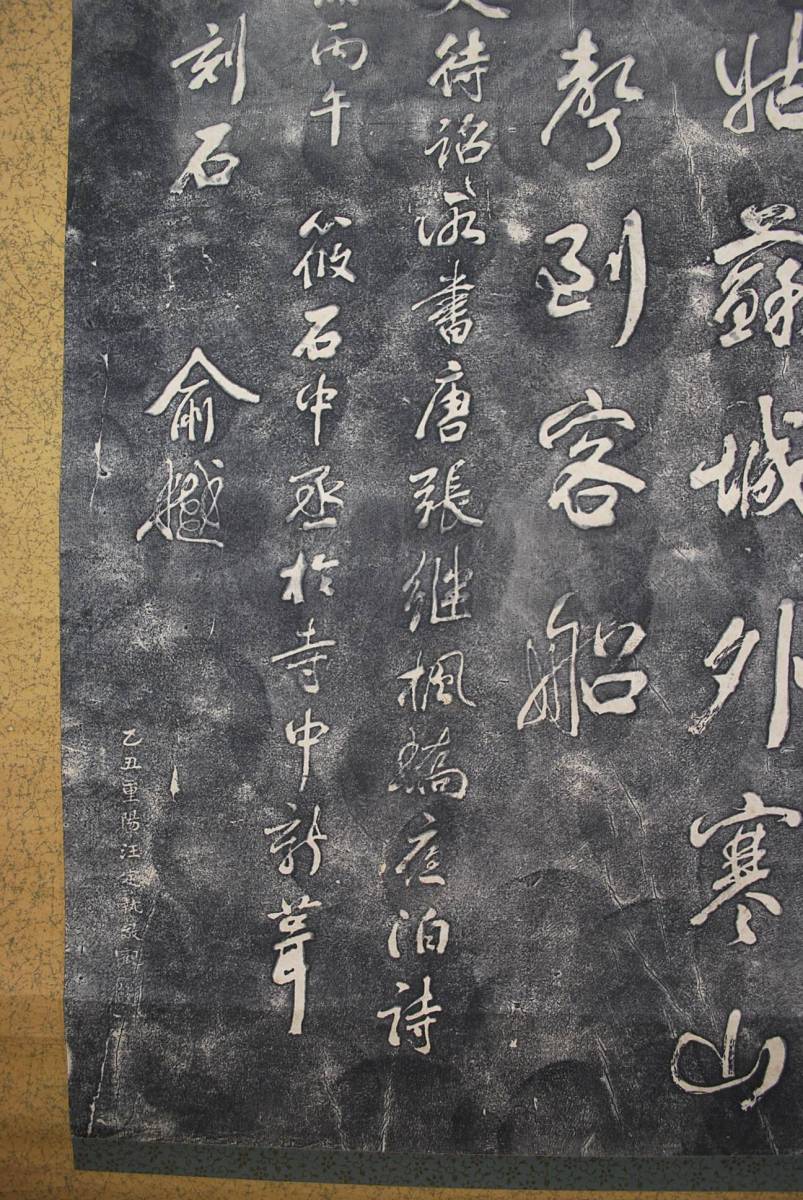 姑蘇城外寒山
聲到客船
待詔 書唐張繼楓橋夜泊詩
丙午 筱石中丞於寺中新葺
刻石 俞樾
乙丑重陽汪